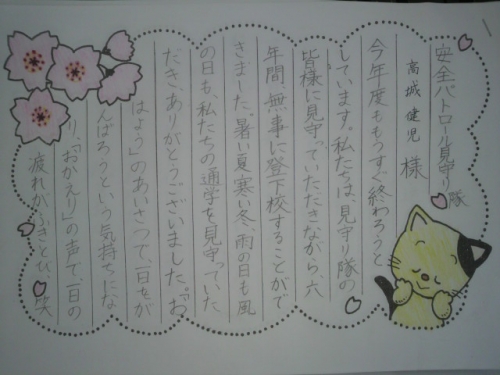 安全パトロール見守り隊
高城健児 様
今年度ももうすぐ終わろうと
しています。私たちは、見守り隊の
皆様に見守っていただきながら、六
年間、無事に登下校することがで
きました。暑い夏、寒い冬、雨の日も風
の日も、私たちの通学を見守っていた
だき、ありがとうございました。「お
はよう」のあいさつで、一日をが
んばろうという気持ちにな
り、「おかえり」の声で、一日の
疲れがふきとび、笑